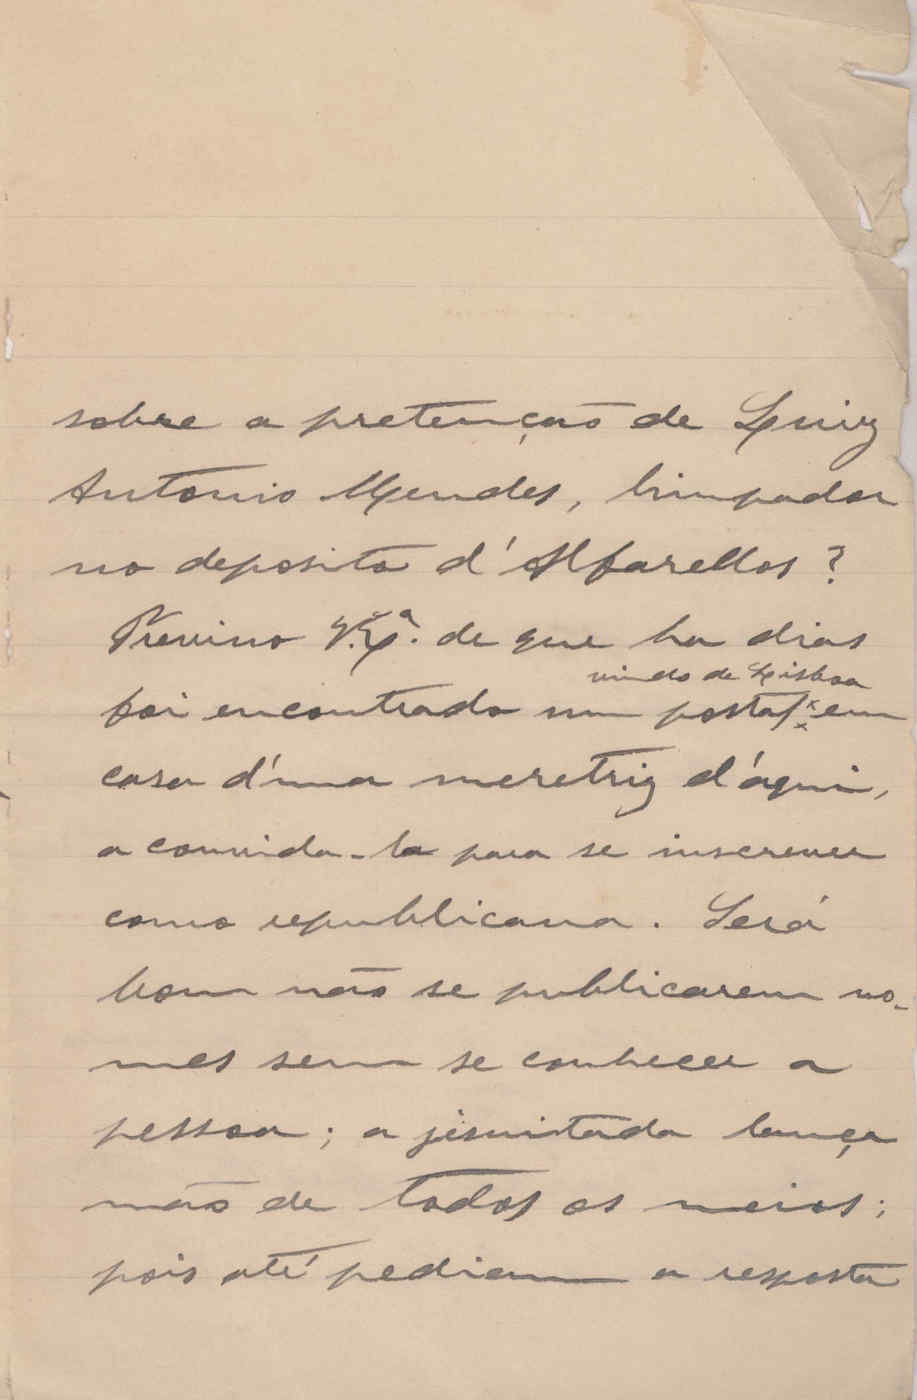 sobre a pretenção de Luiz
Antonio Mendes, limpador
no deposito d'Alfarellos?
Previno V. Ex.ª de que ha dias
vindo de Lisboa
foi encontrado um postal em
casa d'uma meretriz d'áqui,
a convida-la para se inscrever
como republicana. Será
bom não se publicarem no-
mes sem se conhecer a
pessoa; a jesuitada lança
mão de todos os meios;
pois até pediam a resposta